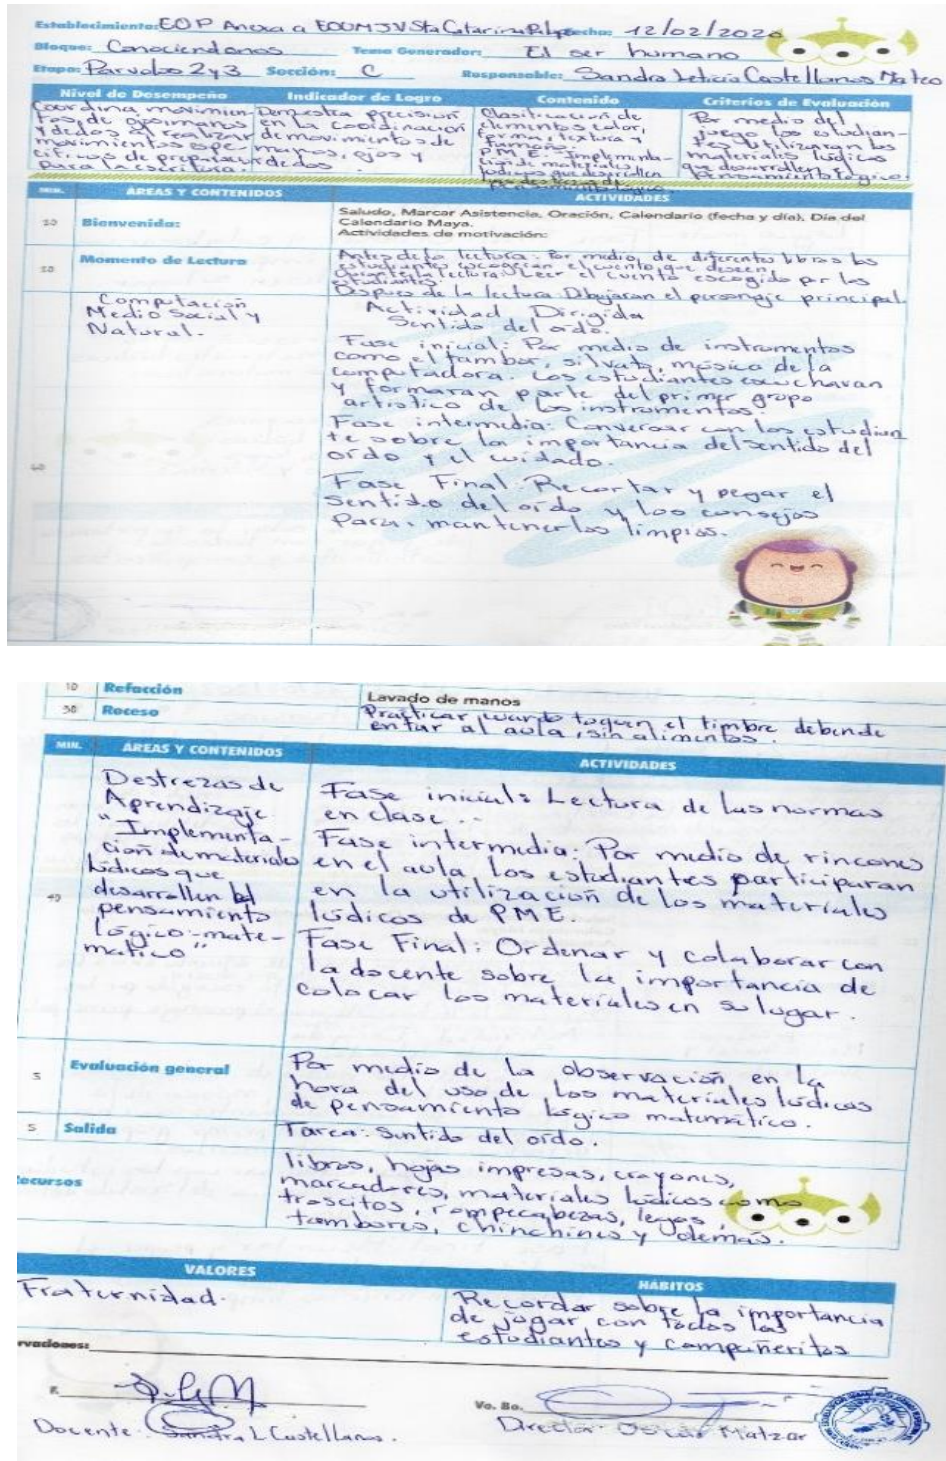 Establecimiento: EOP Anexa a EOUMJV Sta Catarina Palopo Fecha: 12/02/2020
Bloque: Conociendonos Tema Generador: El ser humano
Etapa: Parvulos 2 y 3 Sección: C Responsable: Sandra Leticia Castellanos Mateo
Nivel de Desempeño Indicador de Logro Contenido Criterios de Evaluación
Coordina movimien-
tos de ojos manos
y dedos al realizar
movimientos espe-
cificos de preparación
para la escritura.
Demuestra precisión
en la coordinación
de movimientos de
manos, ojos y
dedos.
Clasificación de
elementos color,
forma, textura y
tamaño.
P.M.E. Implementa-
ción de materiales
ludicos que desarrollen
Por medio del
juego los estudian-
tes utilizaran los
materiales ludicos
que desarrollen el
pensamiento lógico.
MIN. ÁREAS Y CONTENIDOS ACTIVIDADES
10 Bienvenida:
Saludo, Marcar Asistencia, Oración, Calendario (fecha y día), Día del
Calendario Maya.
Actividades de motivación:
Momento de Lectura
Antes de la lectura: Por medio de diferentes libros los
estudiantes escogeran el cuento que deseen
la lectura: Leer cuento escogido por los
estudiantes.
Despues de la lectura Dibujaran el personaje principal
Computación
Medio Social y
Natural.
Actividad Dirigida
Sentido del oído.
Fase inicial: Por medio de instrumentos
como el tambor, silvato, música de la
computadora. Los estudiantes escuchavan
y formaran parte del primer grupo
artistico de los instrumentos.
Fase intermedia: Conversar con los estudian
te sobre la importancia del sentido del
oído y el cuidado.
40
Fase Final: Recortar y pegar el
sentido del oído y los consejos
para mantenerlos limpios.
10 Refacción Lavado de manos
30 Receso Practicar cuando toquen el timbre deben de
entar al aula, sin alimentos.
MIN. ÁREAS Y CONTENIDOS ACTIVIDADES
Destrezas de
Aprendizaje
"Implementa-
ción de materiales
lúdicos que
desarrollen el
pensamiento
lógico-mate-
matico"
40
Fase inicial: Lectura de las normas
en clase...
Fase intermedia: Por medio de rincones
en el aula los estudiantes participaran
en la utilización de los materiales
lúdicos de PME.
Fase Final: Ordenar y colaborar con
la docente sobre la importancia de
colocar los materiales en su lugar.
5 Evaluación general
Por medio de la observación en la
hora del uso de los materiales lúdicos
de pensamiento lógico matemático.
5 Salida Tarea: Sentido del oído.
ecursos
libros, hojas impresas, crayones,
marcadores, materiales lúdicos como
trascitos, rompecabezas, legos,
tambores, chinchines y demás.
VALORES HÁBITOS
Fraternidad.
Recordar sobre la importancia
de jugar con todos los
estudiantes y compañeritos
rvaciones:
F. Vo. Bo.
Docente: Sandra L Castellanos. Director: Oscar Matzar